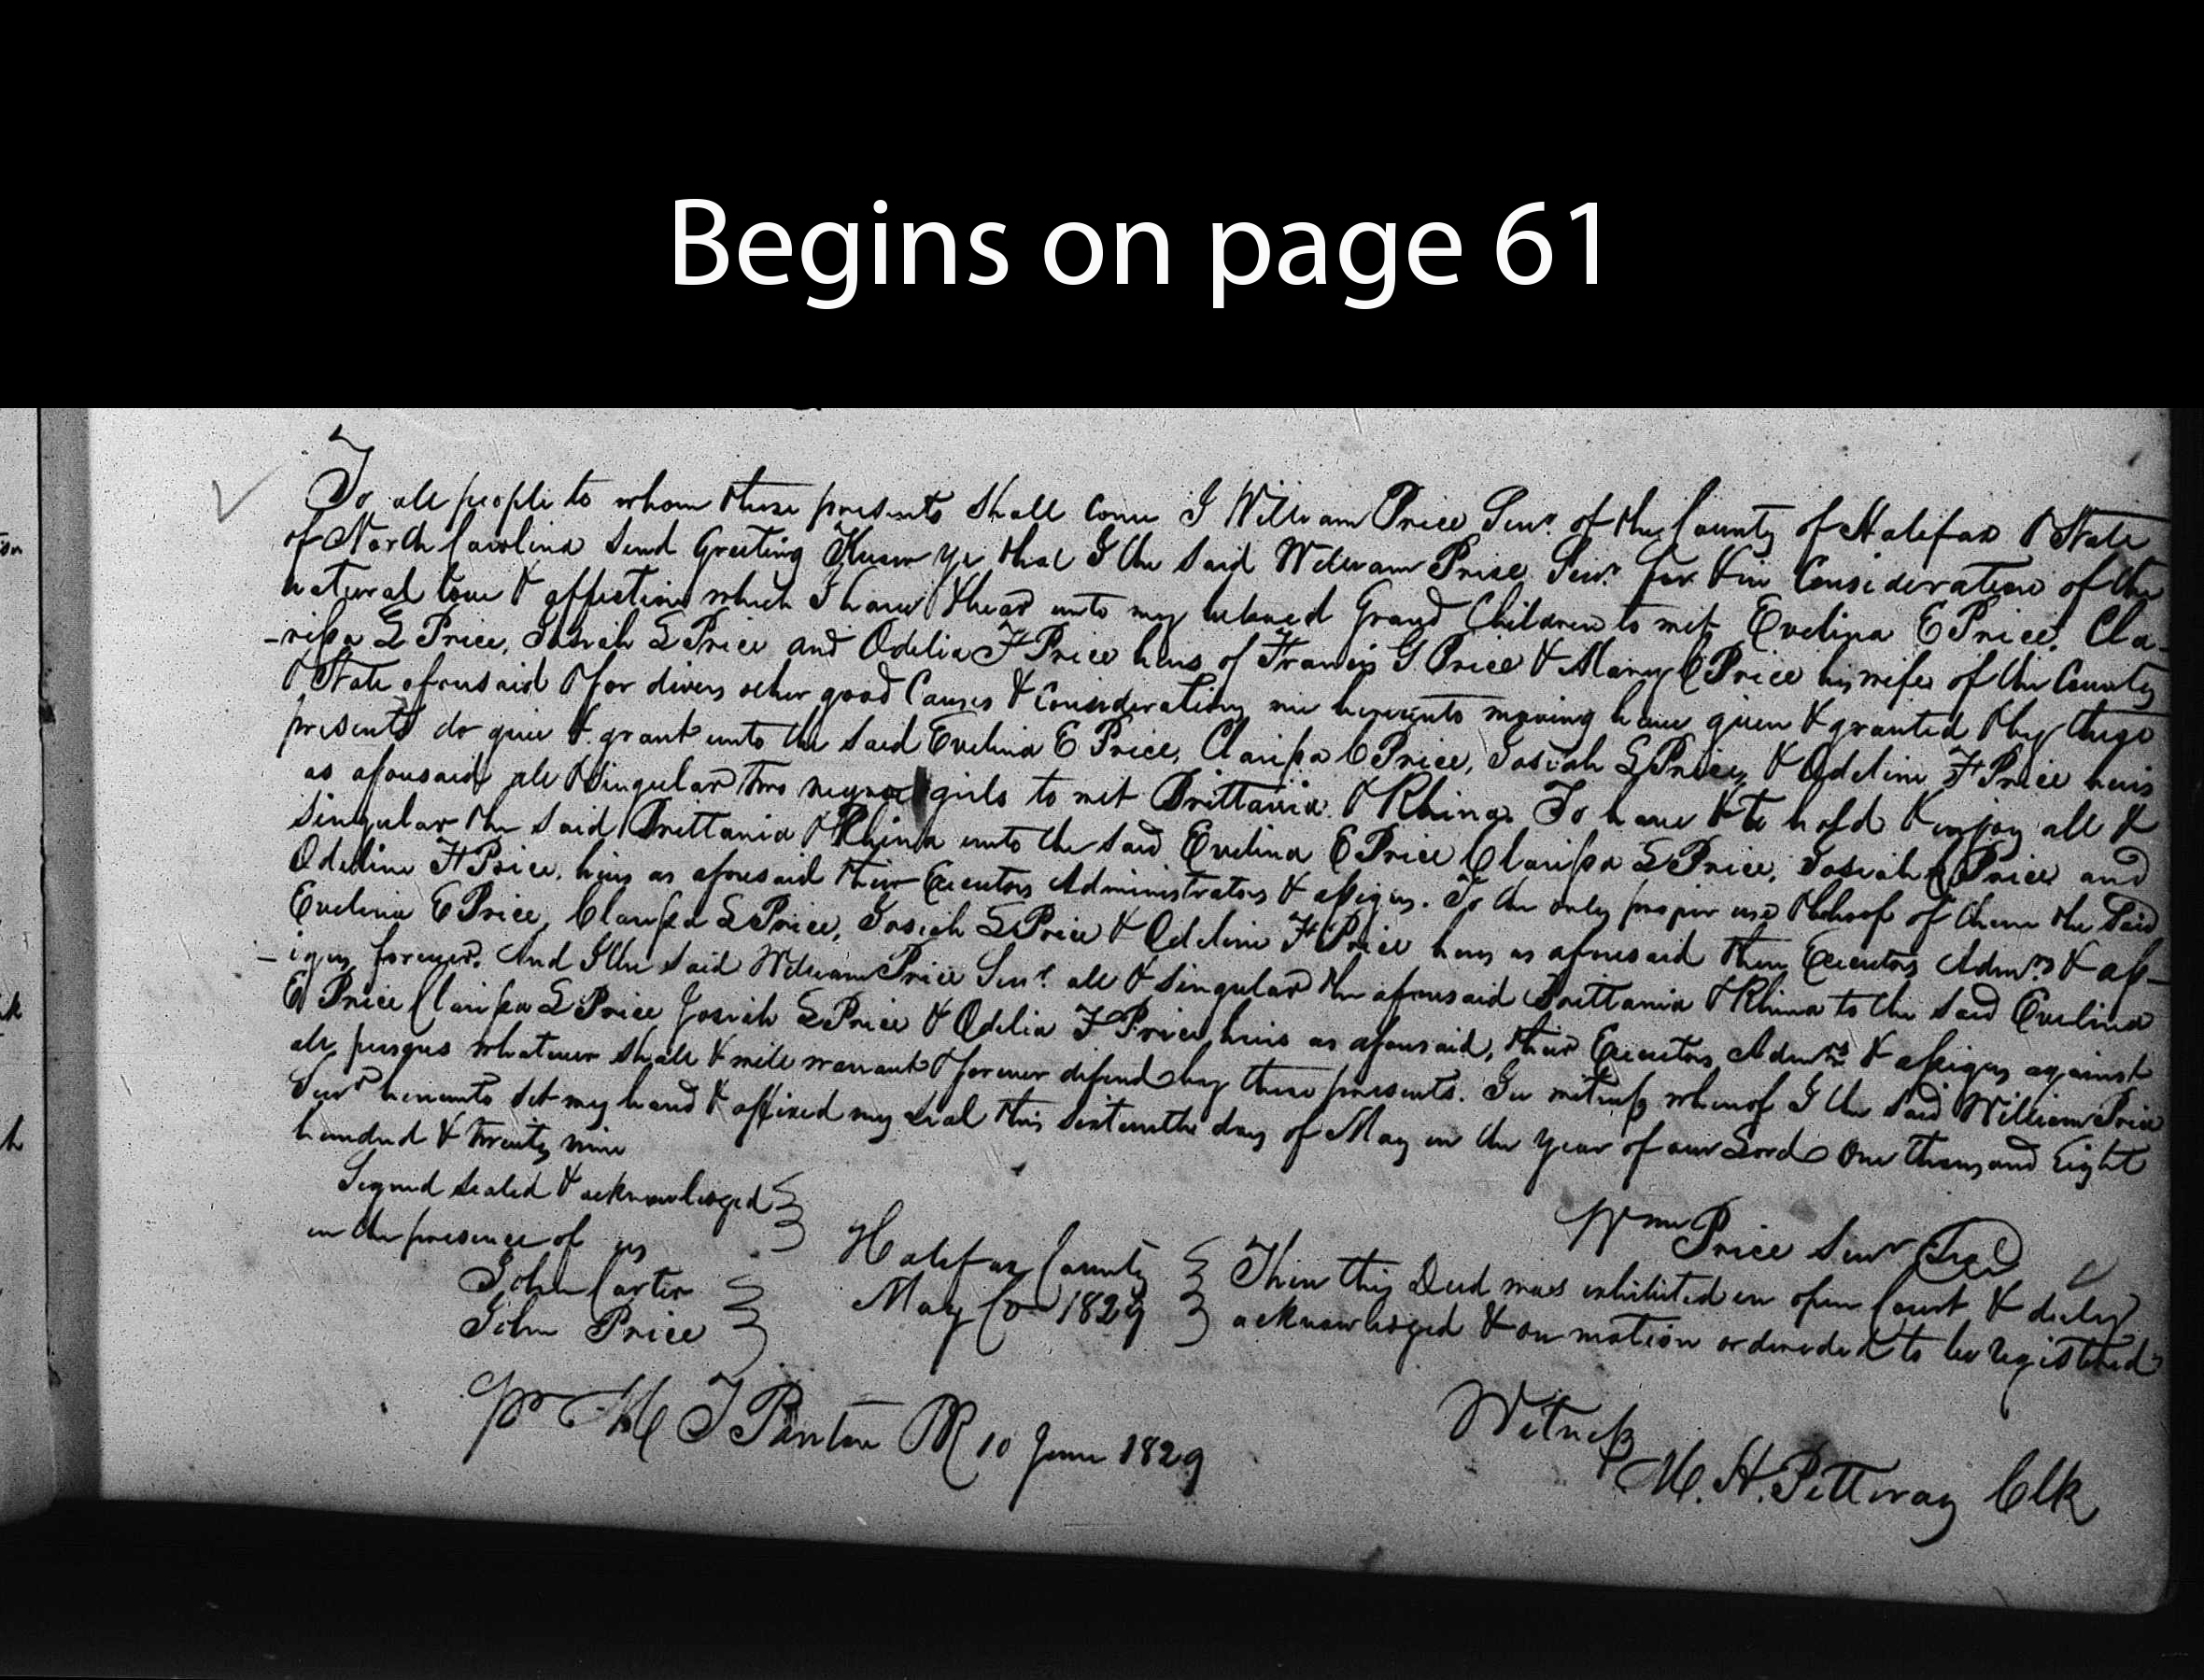 Begins on page 61
To all people to whom these presents shall come I William Price Senr. of the County of Halifax & State
of North Carolina Send Greeting Know ye that I the said William Price Senr. for & in Consideration of the
natural love & affection which I have & bear unto my beloved Grand Children to wit Evelina E Price, Cla-
-rissa L Price, Josiah L Price and Odelia F Price heirs of Francis G Price & Mary C Price his wife of the County
& State aforesaid & for divers other good Causes & Considerations me hereunto moving have given & granted & by these
presents do give & grant unto the said Evelina E Price, Clarissa C Price, Josiah L Price, & Odeline F Price heirs
as aforesaid all & Singular two negroe girls to wit Brittania & Rhina. To have & to hold & enjoy all &
Singular the said Brittania & Rhina unto the said Evelina E Price Clarissa L Price, Josiah L Price and
Odeline F Price, heirs as aforesaid their Executors Administrators & assigns. To the only proper use & behoof of them the said
Evelina E Price, Clarissa L Price, Josiah L Price & Odeline F Price heirs as aforesaid their Executors Admrs & ass-
-igns forever. And I the said William Price Senr. all & Singular the aforesaid Brittania & Rhina to the said Evelina
E Price Clarissa L Price Josiah L Price & Odelia F Price heirs as aforesaid, their Executors Admrs & assigns against
all persons whatever shall & will warrant & forever defend by these presents. In witness whereof I the said William Price
Senr hereunto set my hand & affixed my seal this sixteenth day of May in the year of our Lord One thousand Eight
hundred & twenty nine
Signed sealed & acknowledged
in the presence of us
Wm Price Senr Seal
John Carter
John Price
Halifax County
May Co 1829
Then this Deed was exhibited in open Court & duly
acknowledged & on motion ordereded to be registered
Witness
M. H. Pettway Clk
pr M T Ponton PR 10 June 1829